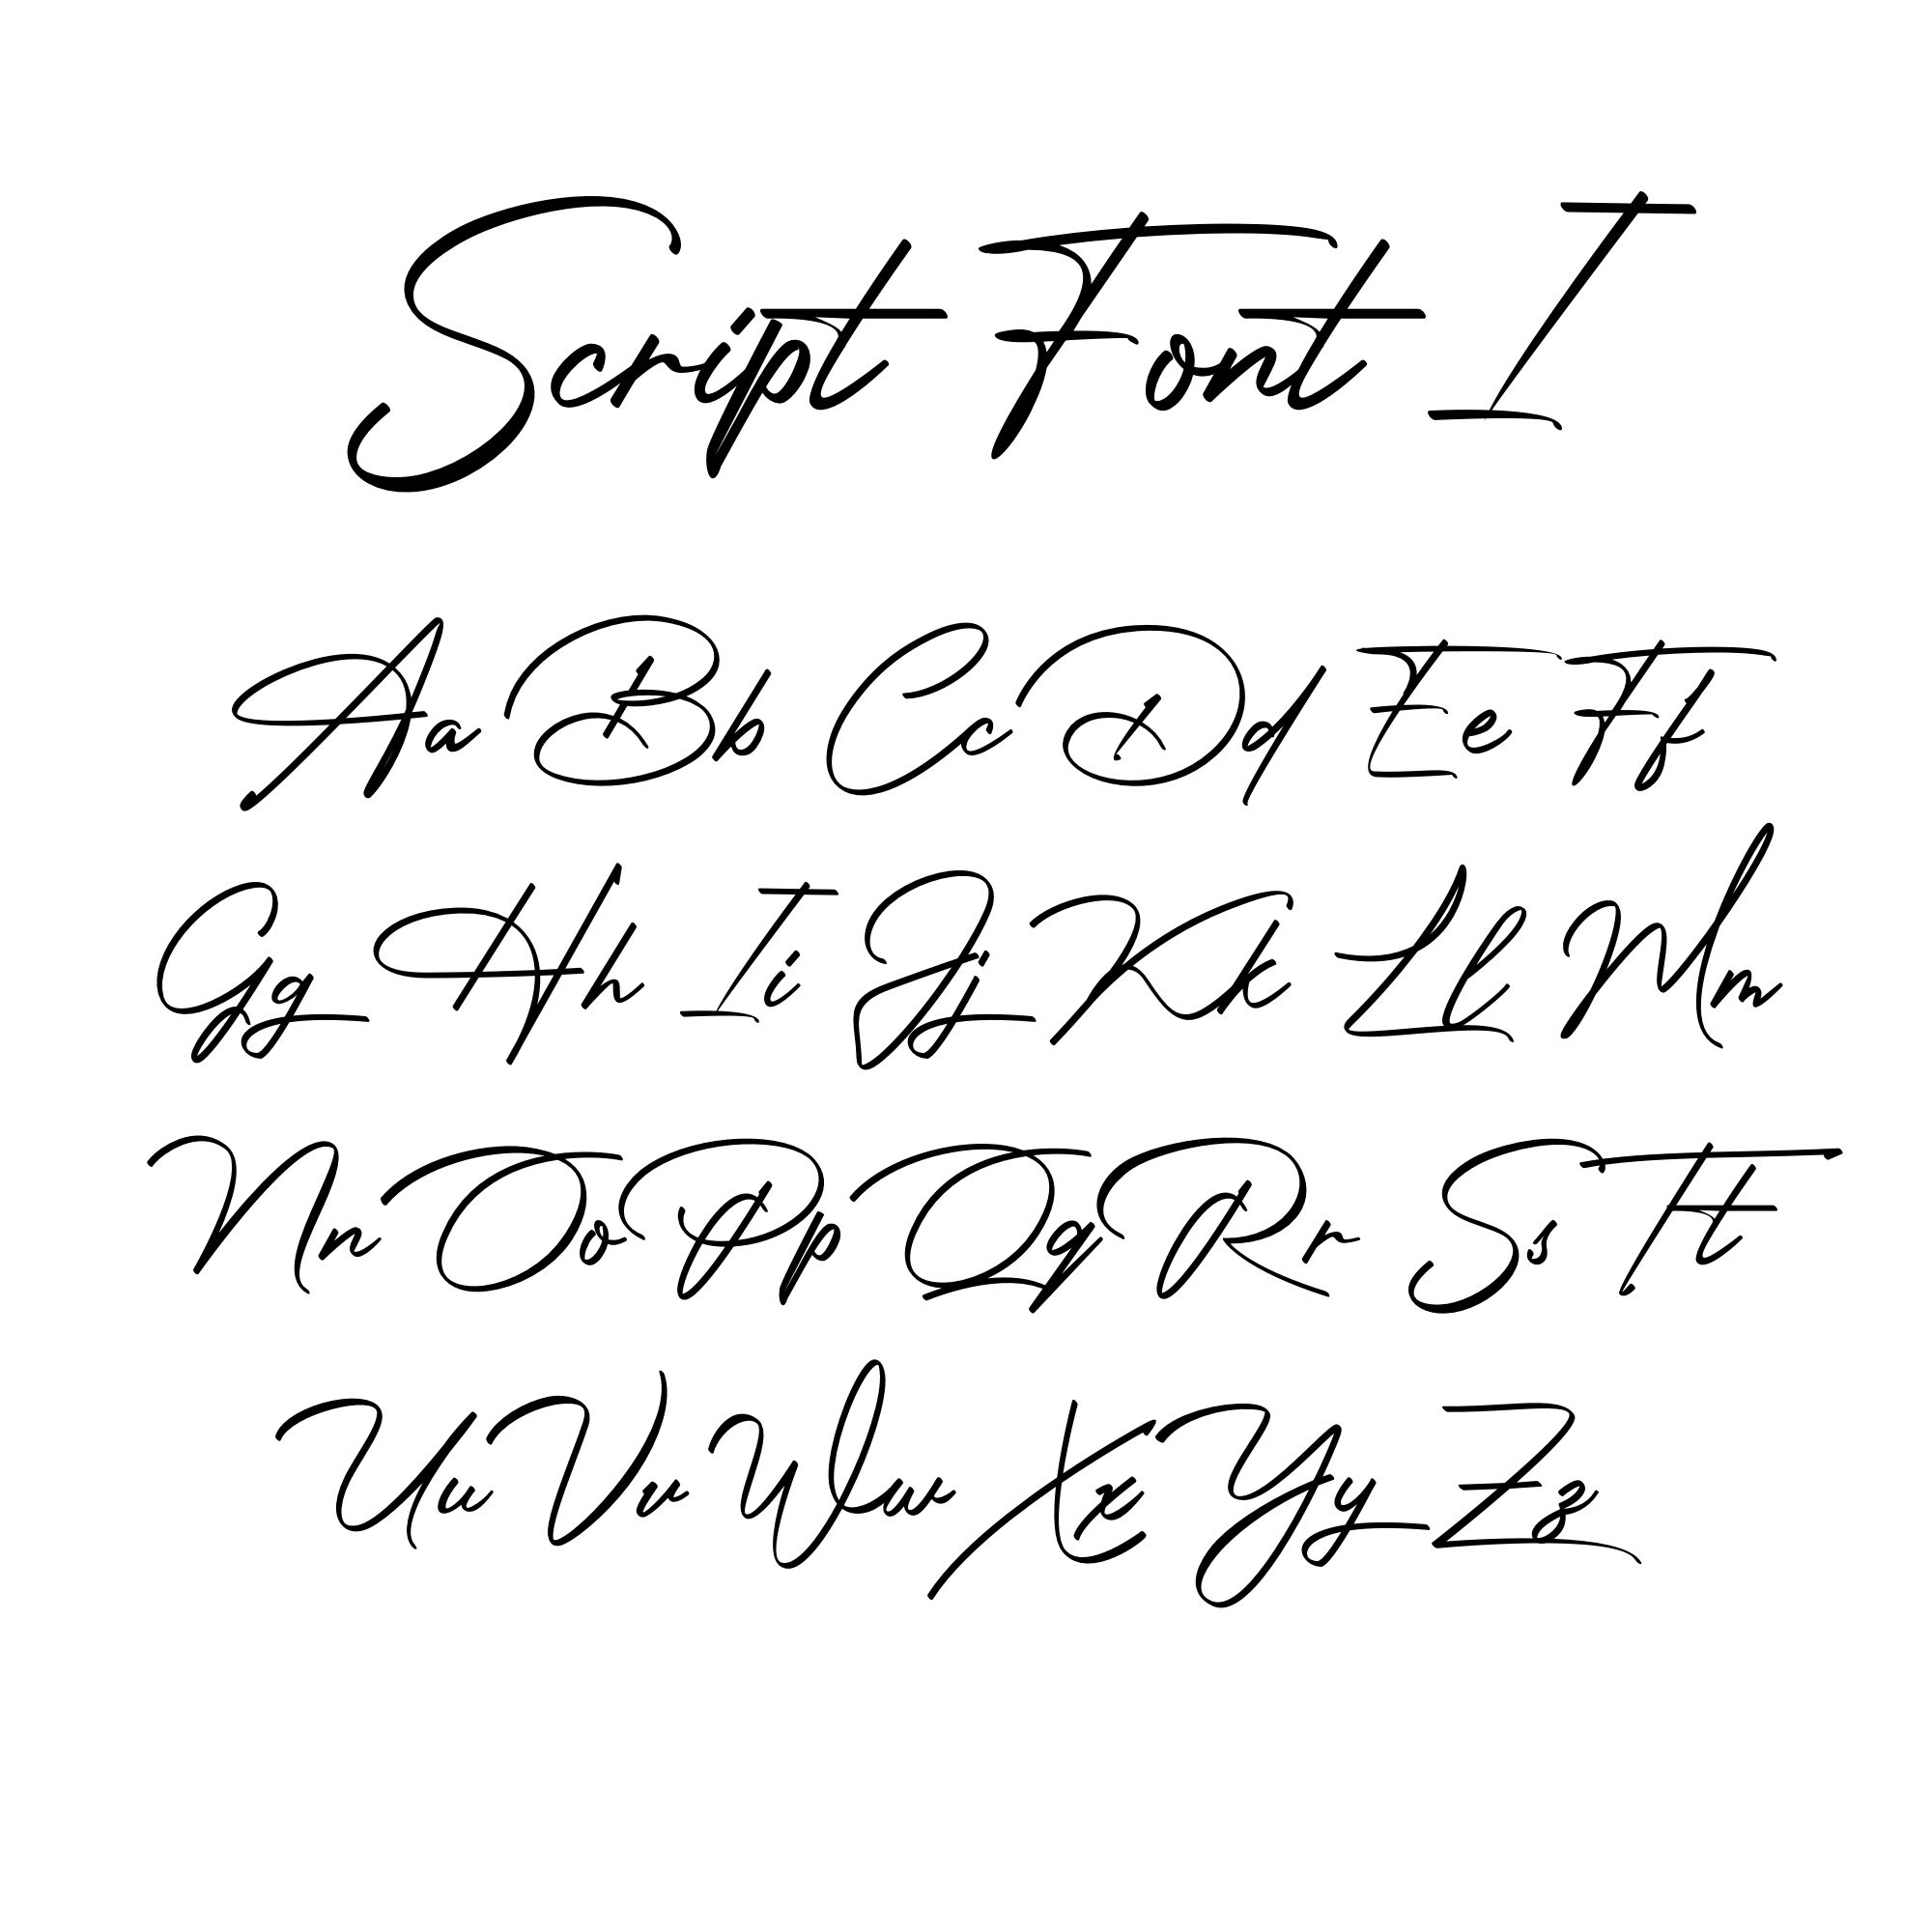 Script Font I
Aa Bb Cc Dd Ee Ff
Gg Hh Ii Jj Kk Ll Mm
Nn Oo Pp Qq Rr Ss Tt
Uu Vv Ww Xx Yy Zz